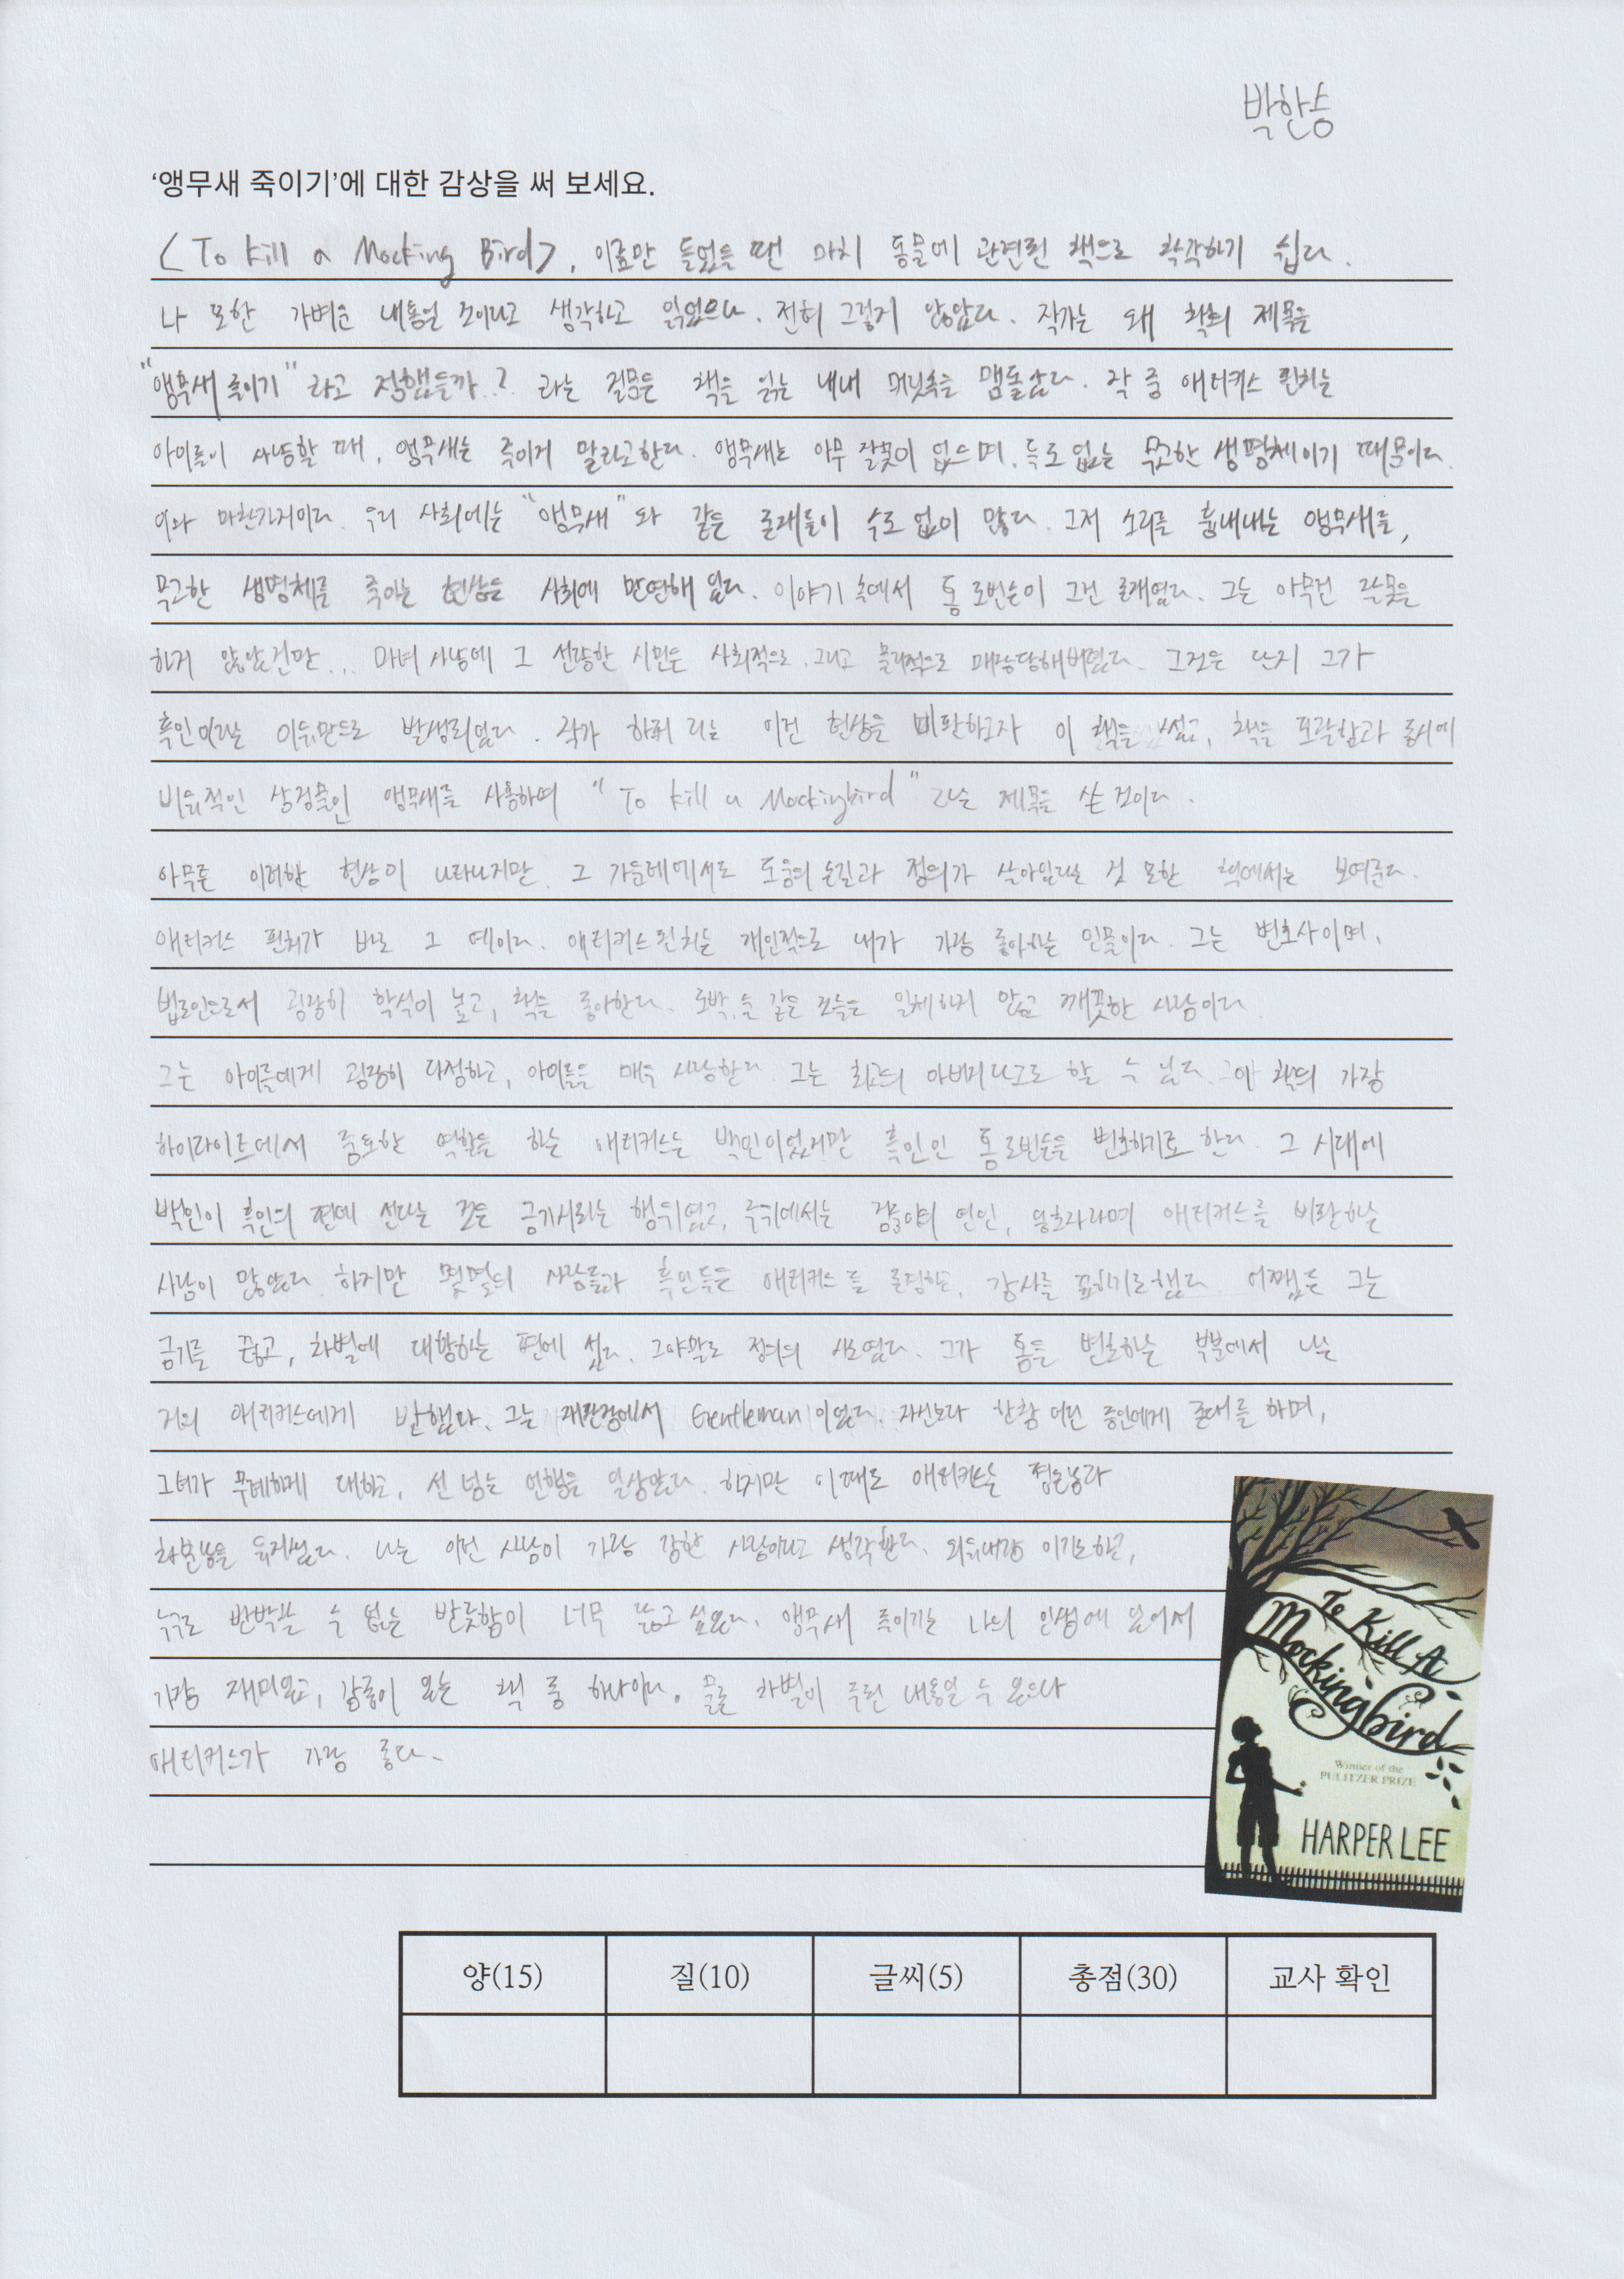 박한승
‘앵무새 죽이기’에 대한 감상을 써 보세요.
<To kill a Mocking Bird>, 이름만 들었을 땐 마치 동물에 관련된 책으로 착각하기 쉽다.
나 또한 가벼운 내용일 것이라고 생각하고 읽었으나, 전혀 그렇지 않았다. 작가는 왜 책의 제목을
"앵무새 죽이기"라고 정했을까..? 라는 질문은 책을 읽는 내내 머릿속을 맴돌았다. 작 중 애티커스 핀치는
아이들이 사냥할 때, 앵무새는 죽이지 말라고한다. 앵무새는 아무 잘못이 없으며, 독도 없는 무고한 생명체이기 때문이다.
이와 마찬가지이다. 우리 사회에는 "앵무새"와 같은 존재들이 수도 없이 많다. 그저 소리를 흉내내는 앵무새를,
무고한 생명체를 죽이는 현상은 사회에 만연해 있다. 이야기 속에서 톰 로빈슨이 그런 존재였다. 그는 아무런 잘못을
하지 않았건만... 마녀 사냥에 그 선량한 시민은 사회적으로, 그리고 물리적으로 매장당해버렸다. 그것은 단지 그가
흑인이라는 이유만으로 발생되었다. 작가 하퍼 리는 이런 현상을 비판하고자 이 책을 썼고, 책을 포괄함과 동시에
비유적인 상징물인 앵무새를 사용하며 "To kill a Mockingbird"라는 제목을 쓴 것이다.
아무튼 이러한 현상이 나타나지만, 그 가운데에서도 도움의 손길과 정의가 살아있다는 것 또한 책에서는 보여준다.
애티커스 핀치가 바로 그 예이다. 애티커스 핀치는 개인적으로 내가 가장 좋아하는 인물이다. 그는 변호사이며,
법조인으로서 굉장히 학식이 높고, 책을 좋아한다. 도박, 술 같은 것들은 일체하지 않고 깨끗한 사람이다.
그는 아이들에게 굉장히 다정하고, 아이들을 매우 사랑한다. 그는 최고의 아버지라고도 할 수 있다. 이 책의 가장
하이라이트에서 중요한 역할을 하는 애티커스는 백인이었지만 흑인인 톰 로빈슨을 변호하기로 한다. 그 시대에
백인이 흑인의 편에 선다는 것은 금기시되는 행위였고, 주위에서는 검둥이의 연인, 옹호자라며 애티커스를 비판하는
사람이 많았다. 하지만 몇몇의 사람들과 흑인들은 애티커스를 존경하고, 감사를 표하기도했다. 어쨌든 그는
금기를 뚫고, 차별에 대항하는 편에 섰다. 그야말로 정의의 사도였다. 그가 톰을 변호하는 부분에서 나는
거의 애티커스에게 반했다. 그는 재판장에서 Gentleman이었다. 자신보다 한참 어린 증인에게 존대를 하며,
그녀가 무례하게 대하고, 선 넘는 언행을 일삼았다. 하지만 이때도 애티커스는 젊은놈과
차분함을 유지했다. 나는 이런 사람이 가장 강한 사람이라고 생각한다. 외유내강 이기도하고,
누구도 반박할 수 없는 반듯함이 너무 닮고 싶었다. 앵무새 죽이기는 나의 인생에 있어서
가장 재미있고, 감동이 있는 책 중 하나이다. 물론 차별이 주된 내용일 수 있으나
애티커스가 가장 좋다.
To Kill A Mockingbird
Winner of the
PULITZER PRIZE
HARPER LEE
양(15) 질(10) 글씨(5) 총점(30) 교사 확인